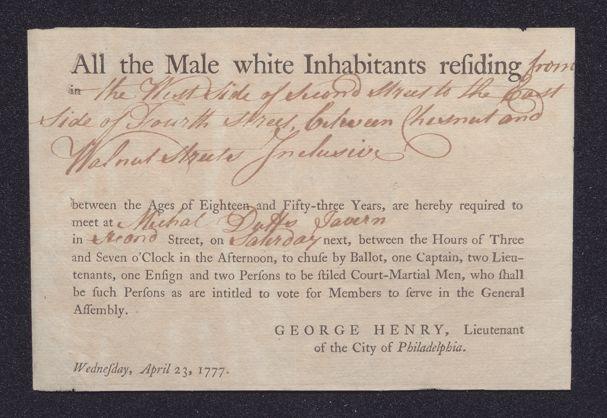 All the Male white Inhabitants reſiding from
in the West Side of Second Street to the East
Side of Fourth Street, between Chesnut and
Walnut Streets Inclusive
between the Ages of Eighteen and Fifty-three Years, are hereby required to
meet at Michal Duffs Tavern
in Second Street, on Saturday next, between the Hours of Three
and Seven o'Clock in the Afternoon, to chuſe by Ballot, one Captain, two Lieu-
tenants, one Enſign and two Perſons to be ſtiled Court-Martial Men, who ſhall
be ſuch Perſons as are intitled to vote for Members to ſerve in the General
Aſſembly.
GEORGE HENRY, Lieutenant
of the City of Philadelphia.
Wedneſday, April 23, 1777.